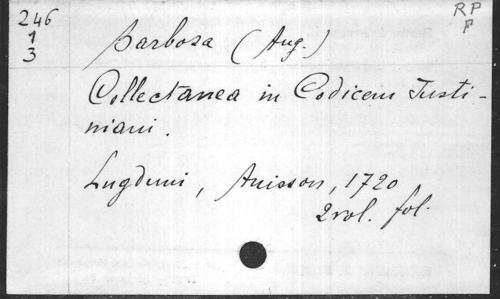 246
1
3
RP
P
Barbosa (Aug.)
Collectanea in Codicem Justi-
niani.
Lugduni, Anisson, 1720
2 vol. fol.